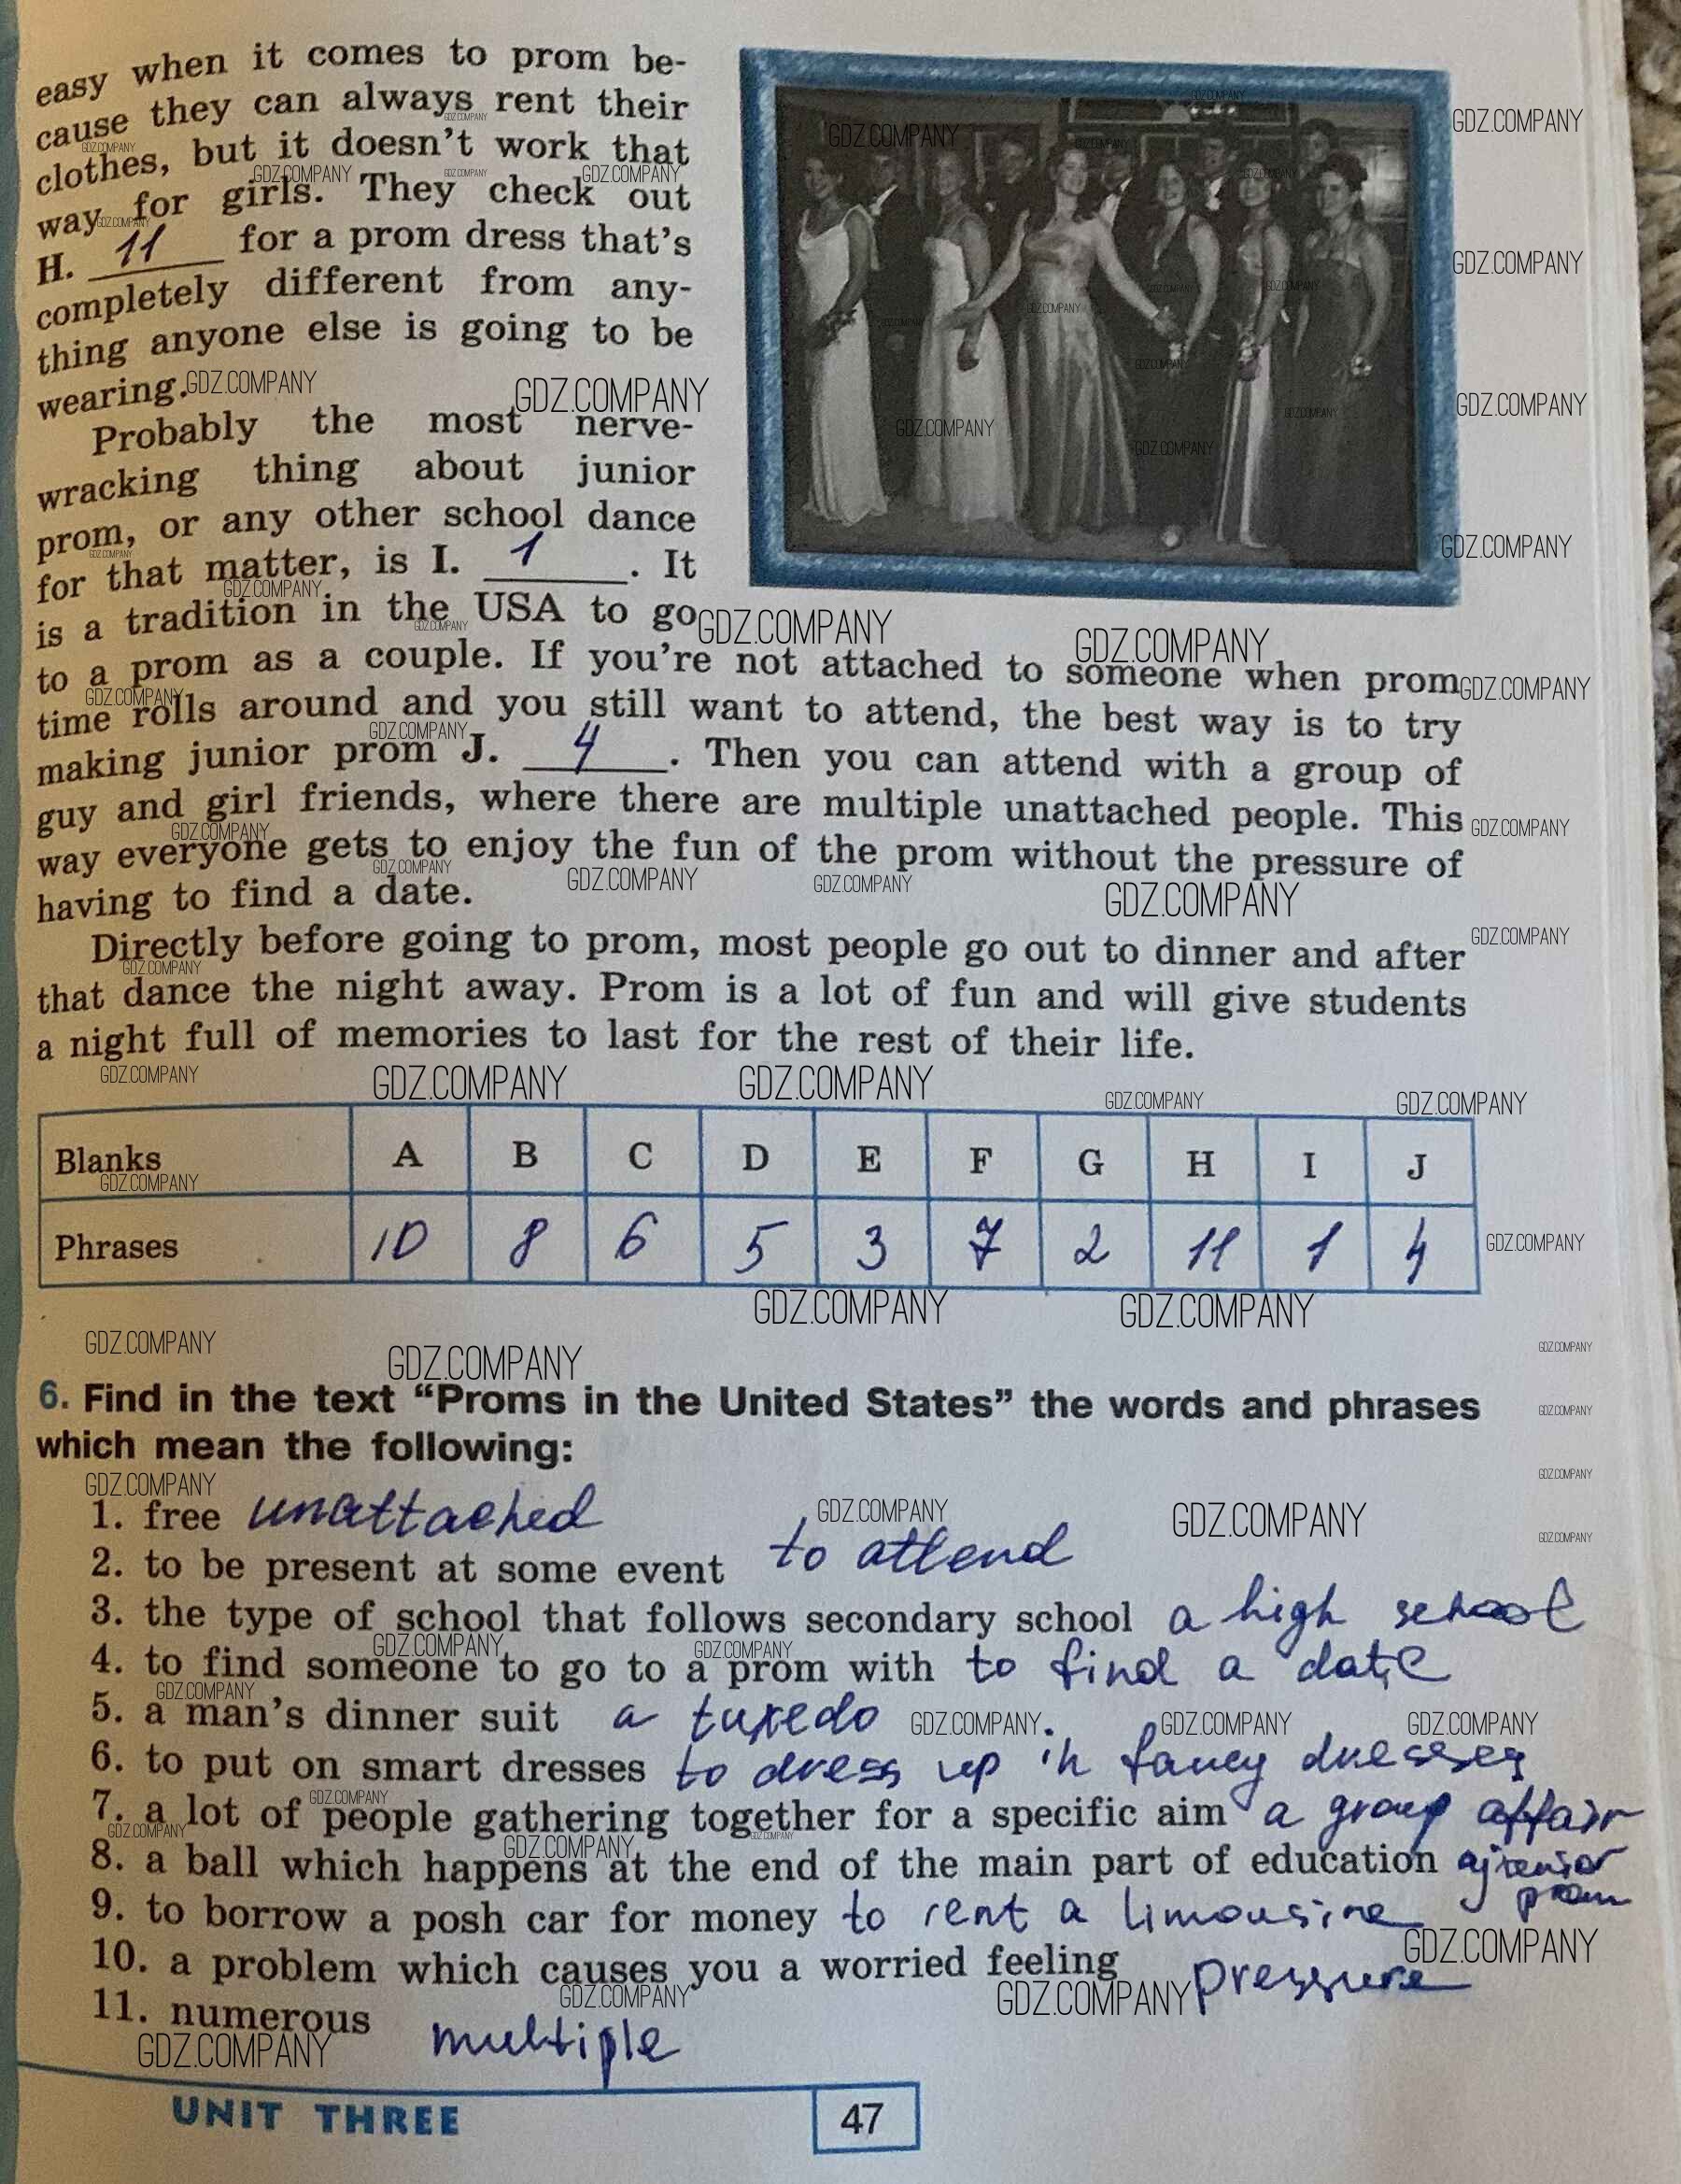 easy when it comes to prom be-
cause they can always rent their
clothes, but it doesn't work that
way for girls. They check out
H. 11 for a prom dress that's
completely different from any-
thing anyone else is going to be
wearing.
Probably the most nerve-
wracking thing about junior
prom, or any other school dance
for that matter, is I. 1. It
is a tradition in the USA to go
to a prom as a couple. If you're not attached to someone when prom
time rolls around and you still want to attend, the best way is to try
making junior prom J. 4. Then you can attend with a group of
guy and girl friends, where there are multiple unattached people. This
way everyone gets to enjoy the fun of the prom without the pressure of
having to find a date.
Directly before going to prom, most people go out to dinner and after
that dance the night away. Prom is a lot of fun and will give students
a night full of memories to last for the rest of their life.
GDZ.COMPANY
Blanks A B C D E F G H I J
Phrases 10 8 6 5 3 7 2 11 1 4
6. Find in the text “Proms in the United States” the words and phrases
which mean the following:
1. free unattached
2. to be present at some event to attend
3. the type of school that follows secondary school a high school
4. to find someone to go to a prom with to find a date
5. a man's dinner suit a tuxedo
6. to put on smart dresses to dress up in fancy dresses
7. a lot of people gathering together for a specific aim a group affair
8. a ball which happens at the end of the main part of education a
prom
9. to borrow a posh car for money to rent a limousine
10. a problem which causes you a worried feeling pressure
11. numerous multiple
UNIT THREE 47